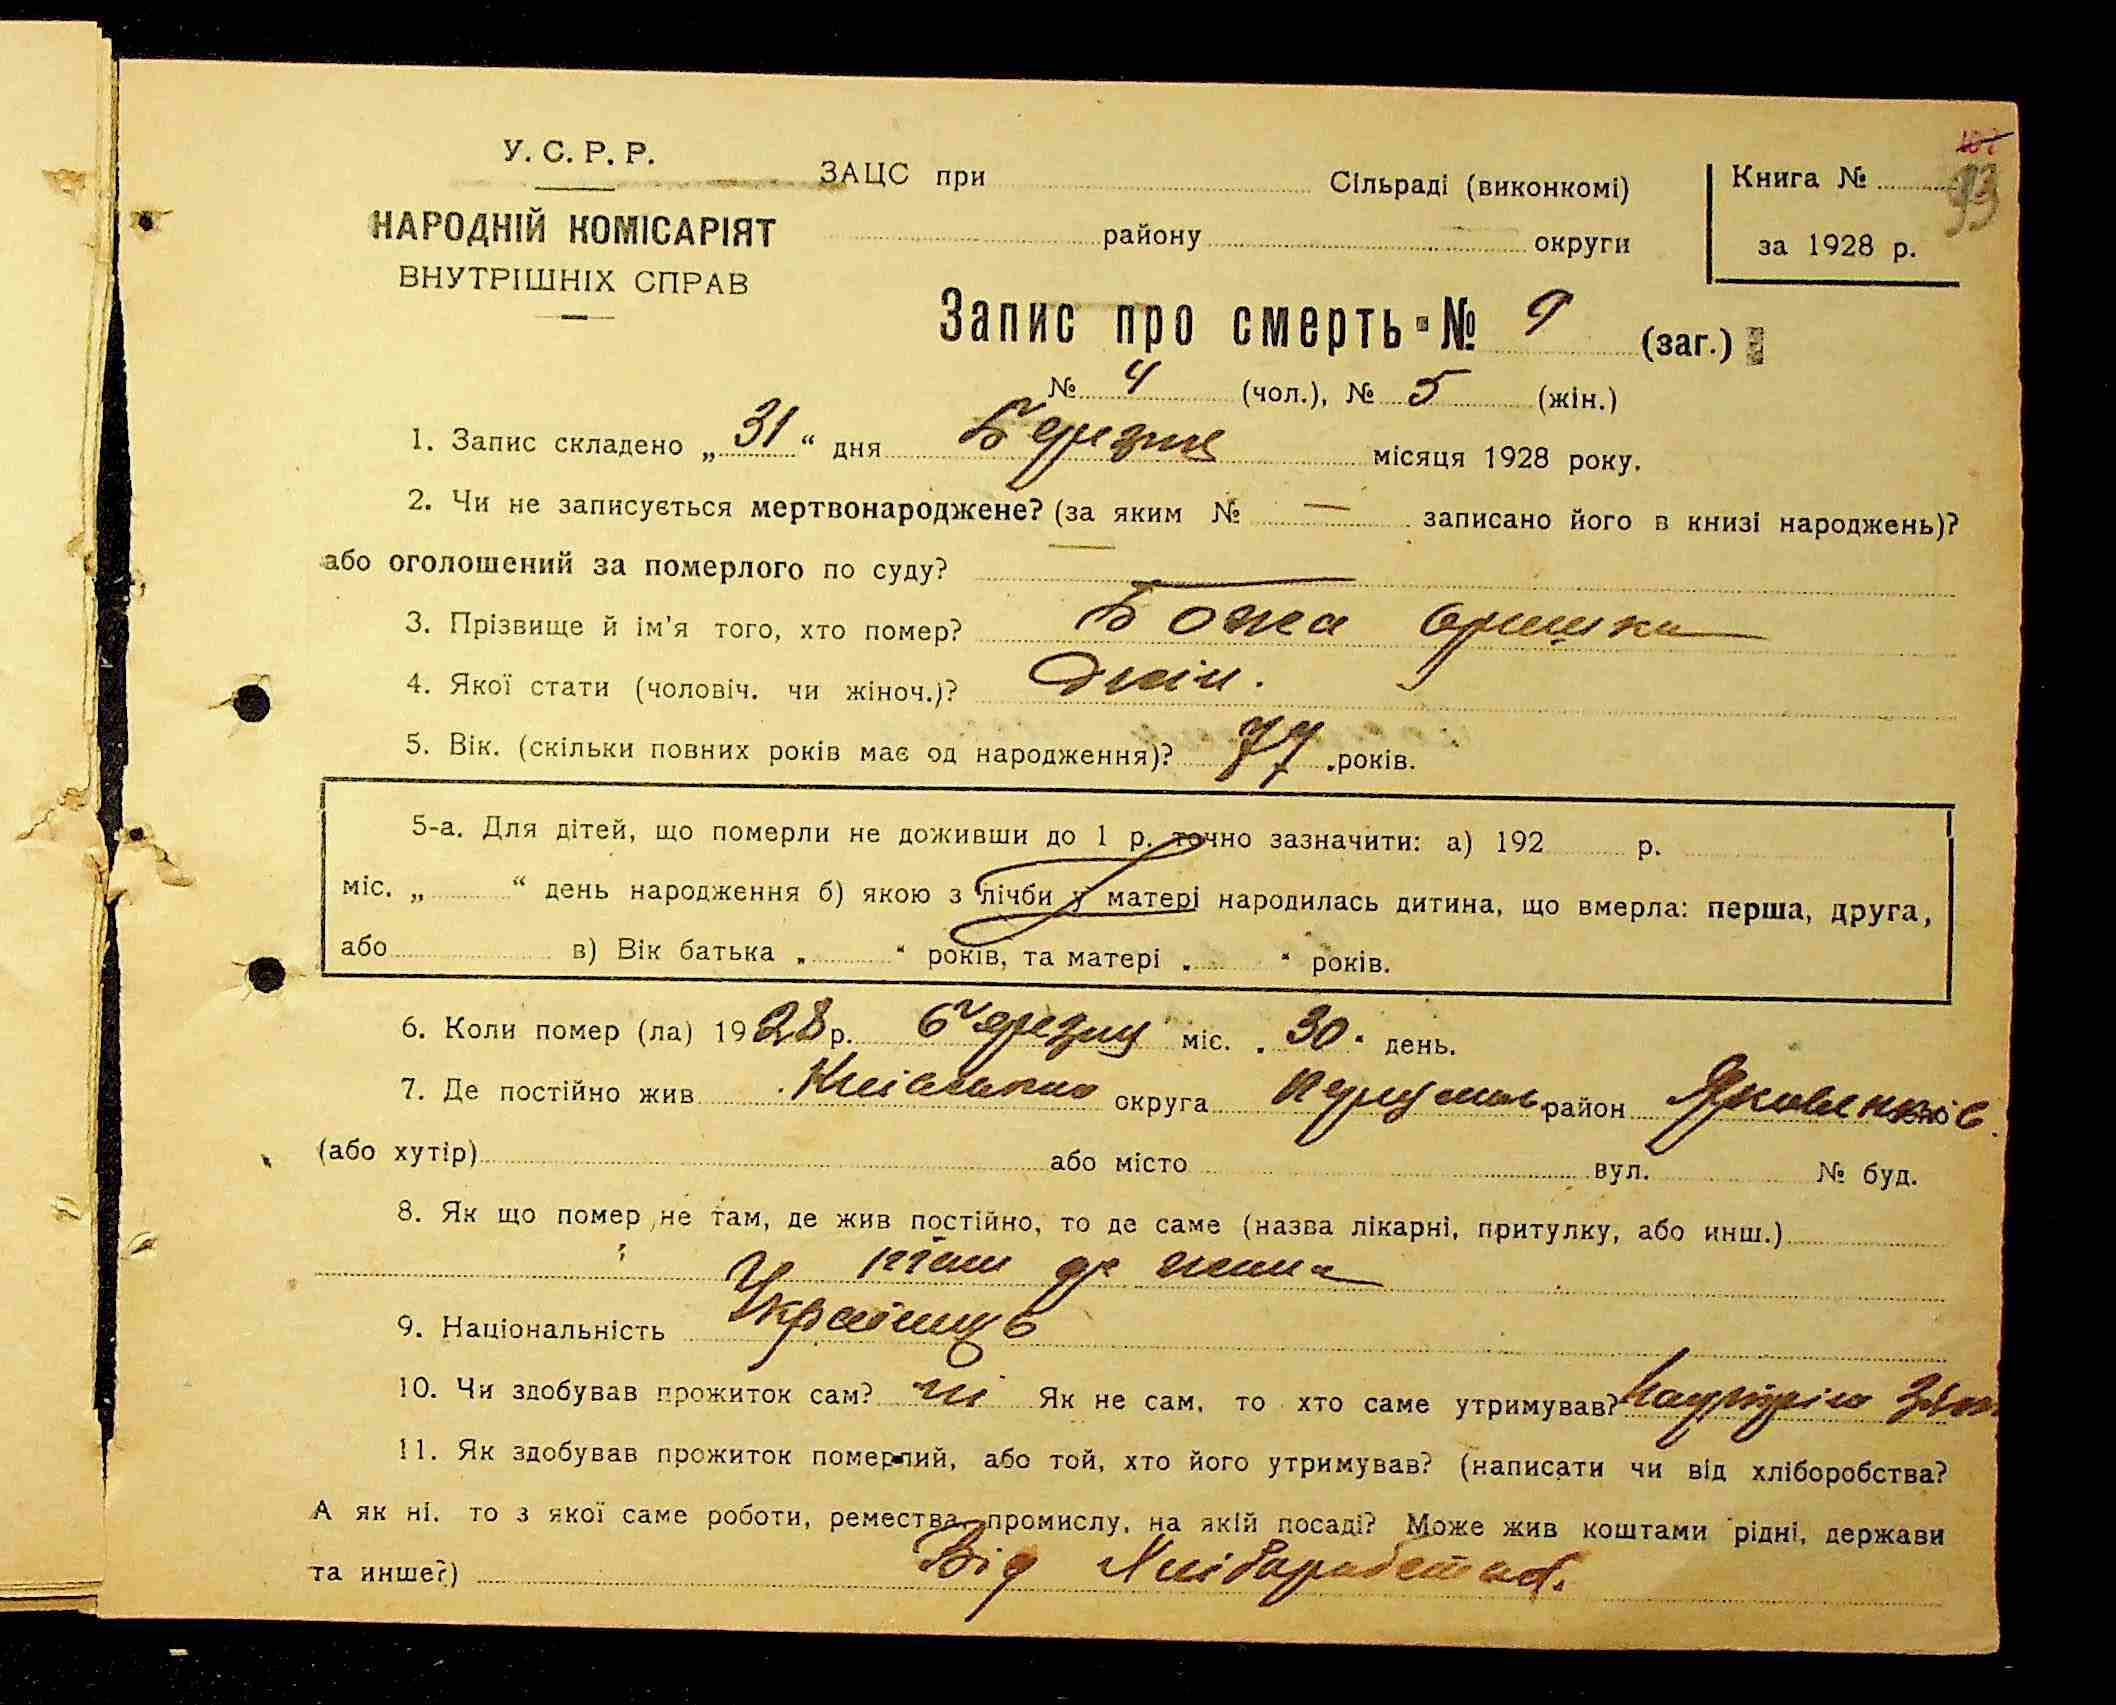 У. С. Р. Р.
НАРОДНІЙ КОМІСАРІЯТ
ВНУТРІШНІХ СПРАВ
ЗАЦС при Сільраді (виконкомі)
району округи
Книга №
93
за 1928 р.
Запис про смерть № 9 (заг.)
№ 4 (чол.), № 5 (жін.)
1. Запис складено „31“ дня Березня місяця 1928 року.
2. Чи не записується мертвонароджене? (за яким № — записано його в книзі народжень)?
або оголошений за померлого по суду? —
3. Прізвище й ім'я того, хто помер? Божа Оришка
4. Якої стати (чоловіч. чи жіноч.)? Жін.
5. Вік. (скільки повних років має од народження)? 77 років.
5-а. Для дітей, що померли не доживши до 1 р. точно зазначити: а) 192 р.
міс. „ “ день народження б) якою з лічби у матері народилась дитина, що вмерла: перша, друга,
або в) Вік батька „ “ років, та матері „ “ років.
6. Коли помер (ла) 1928 р. березня міс. „30“ день.
7. Де постійно жив округа район Яковенків
(або хутір) або місто вул. № буд.
8. Як що помер не там, де жив постійно, то де саме (назва лікарні, притулку, або инш.)
там де жила
9. Національність
10. Чи здобував прожиток сам? ні Як не сам, то хто саме утримував?
11. Як здобував прожиток померлий, або той, хто його утримував? (написати чи від хліборобства?
А як ні. то з якої саме роботи, ремества, промислу, на якій посаді? Може жив коштами рідні, держави
та инше?) Від Хліборобства.